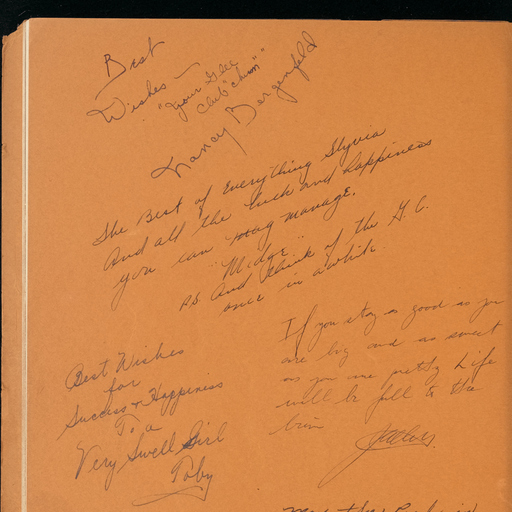 Best
Wishes —
"Your Glee
Club "chum""
Nancy Bergenfeld
The Best of Everything Slyvia
And all the luck and happiness
you can manage.
"Midge"
P.S And think of the G. C.
once in awhile.
Best Wishes
for
Success & Happiness
To a
Very Swell Girl
Toby
If you stay as good as you
are big and as sweet
as you are pretty Life
will be full to the
brim